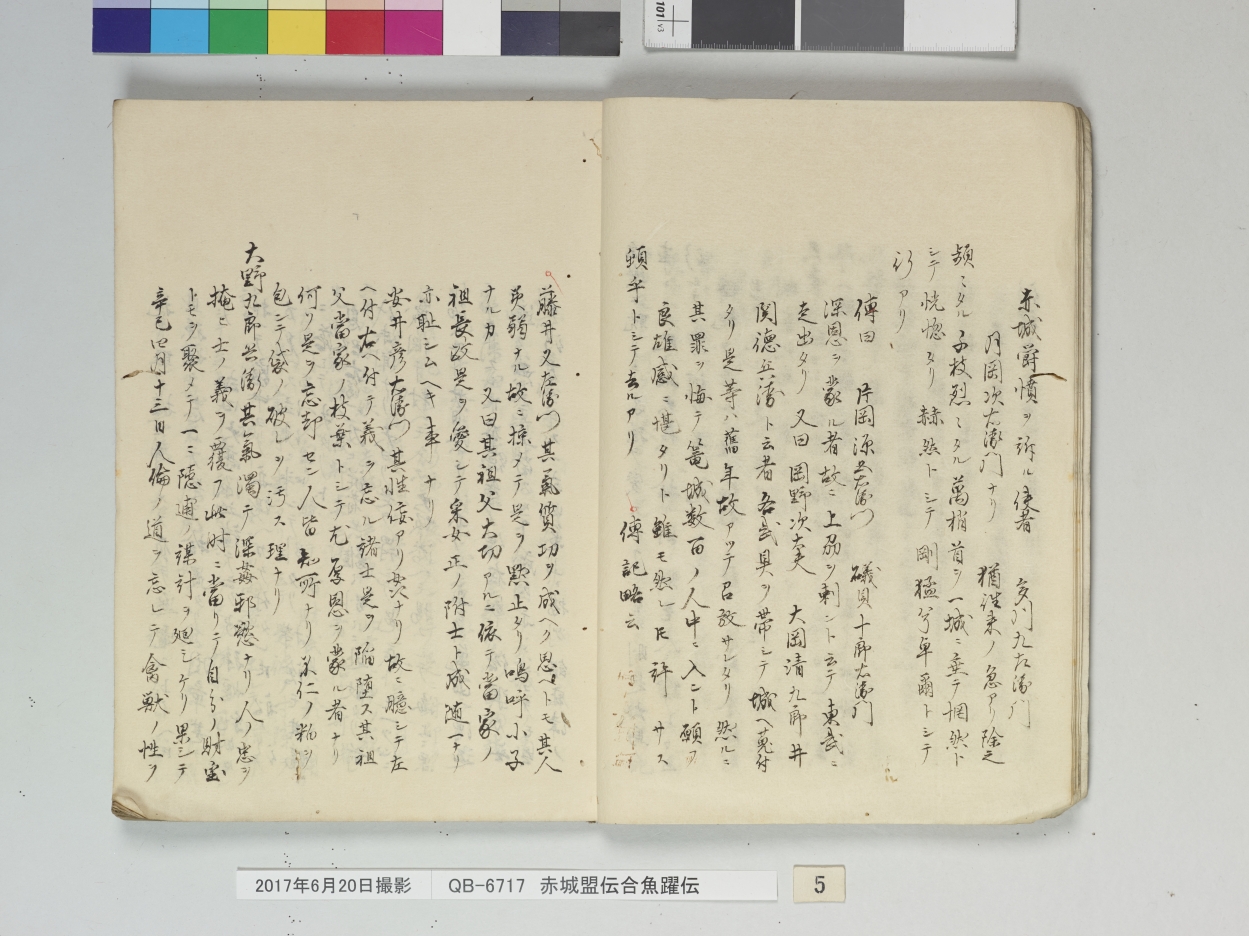 赤城欝憤ヲ訴ル使者 多門九左衛門
月岡次右衛門ナリ 猶往来ノ急アリ除之
頻ミタル子枝烈ミタル萬梢首ヲ一城ニ垂テ惘然ト
シテ恍惚タリ 赫然トシテ 剛猛兮卑爾トシテ
アリ
傳曰 片岡源五右衛門 礒貝十郎右衛門
深恩ヲ蒙ル者故ニ上刕ヲ刺ント云テ東武ニ
走出タリ 又曰 岡野次大夫 大岡清九郎井
関徳兵衛ト云者各武具ヲ帯シテ城ヘ蒐付
タリ是等ハ舊年故アツテ召放サレタリ 然ルニ
其罪ヲ悔テ篭城数百ノ人中ニ入ント願フ
良雄感ニ堪タリト雖モ然レ𪜈許サス
頓乎トシテ去ルアリ 傳記略云
藤井又左衛門其氣質功ヲ成ヘク思ヘトモ其人
柔弱ナル故ニ掠メテ是ヲ黙止タリ嗚呼小子
ナルカ 又曰其祖父大切アルニ依テ當家ノ
祖長政是ヲ愛シテ采女正ノ附士ト成随一ナリ
亦耻シムヘキ事ナリ
安井彦右衛門其性佞アリ奸ナリ故ニ臆シテ左
ヘ付右ヘ付テ義ヲ忘ル諸士是ヲ陥堕ス其祖
父當家ノ枝葉トシテ尤厚恩ヲ蒙ル者ナリ
何リ是ヲ忘却セン人皆知所ナリ米仁ノ粕ヲ
包ンテ袋ノ破レヲ汚ス理ナリ
大野九郎兵衛其氣濁テ深姦邪慾ナリ人ノ忠ヲ
掩ヒ士ノ義ヲ覆フ此时ニ當リテ自分ノ財宝
トモヲ聚メテ一ニ隠逋ノ謀計ヲ廻シケリ果シテ
辛巳四月十三日人倫ノ道ヲ忘レテ禽獣ノ性ヲ
2017年6月20日撮影 QB-6717 赤城盟伝合魚躍伝 5